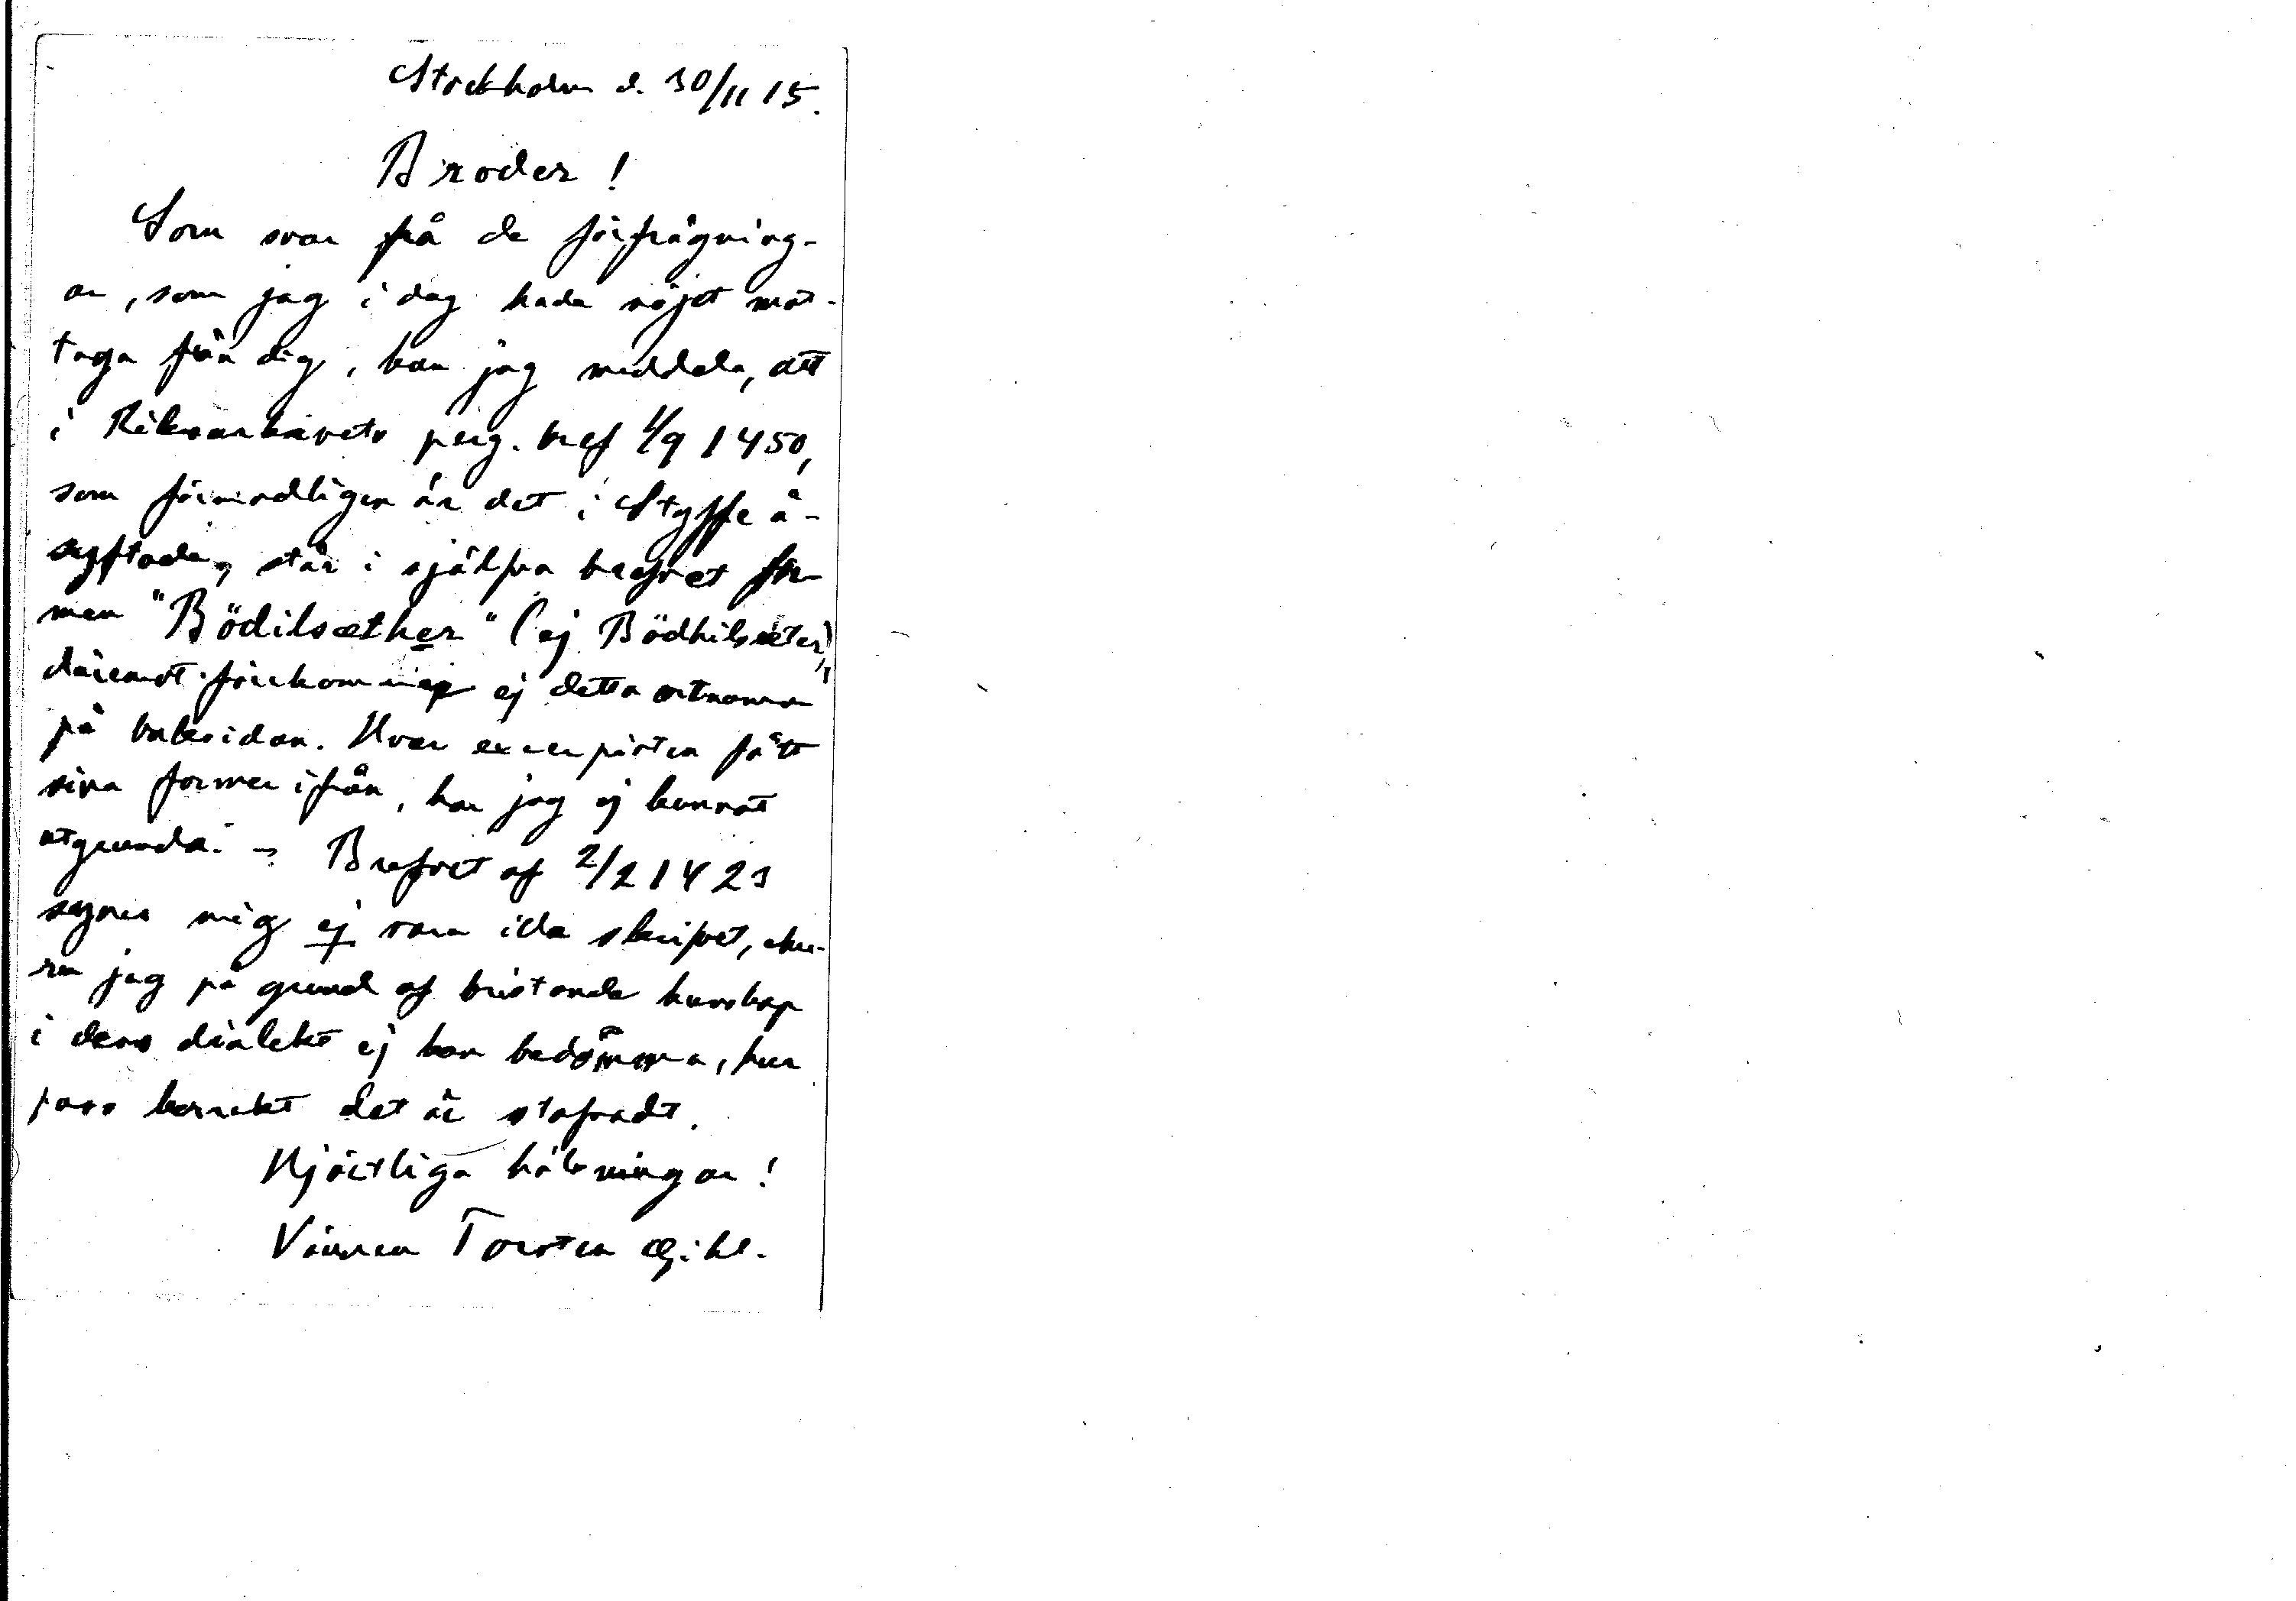 Stockholm d. 30/11 15.
Broder!
Som svar på de förfrågning-
ar, som jag i dag hade nöjet mot-
taga från dig, kan jag meddela, att
i Riksarkivets perg. bref 1/9 1450,
som förmodligen är det i Styffe å-
syftade, står i själfva brefvet for-
men "Bödilsæther" (ej Bödhilsæter),
däremot förekommer ej detta ortnamn
på baksidan. Hvar excerpisten fått
sina former ifrån, har jag ej kunnat
utgrunda. – Brefvet af 2/2 1423
synes mig ej vara illa skrifvet, ehu-
ru jag på grund af bristande kunskap
i dess dialekt ej kan bedömma, hur
pass korrekt det är stafvadt.
Hjärtliga hälsningar!
Vännen Torsten Gihl.